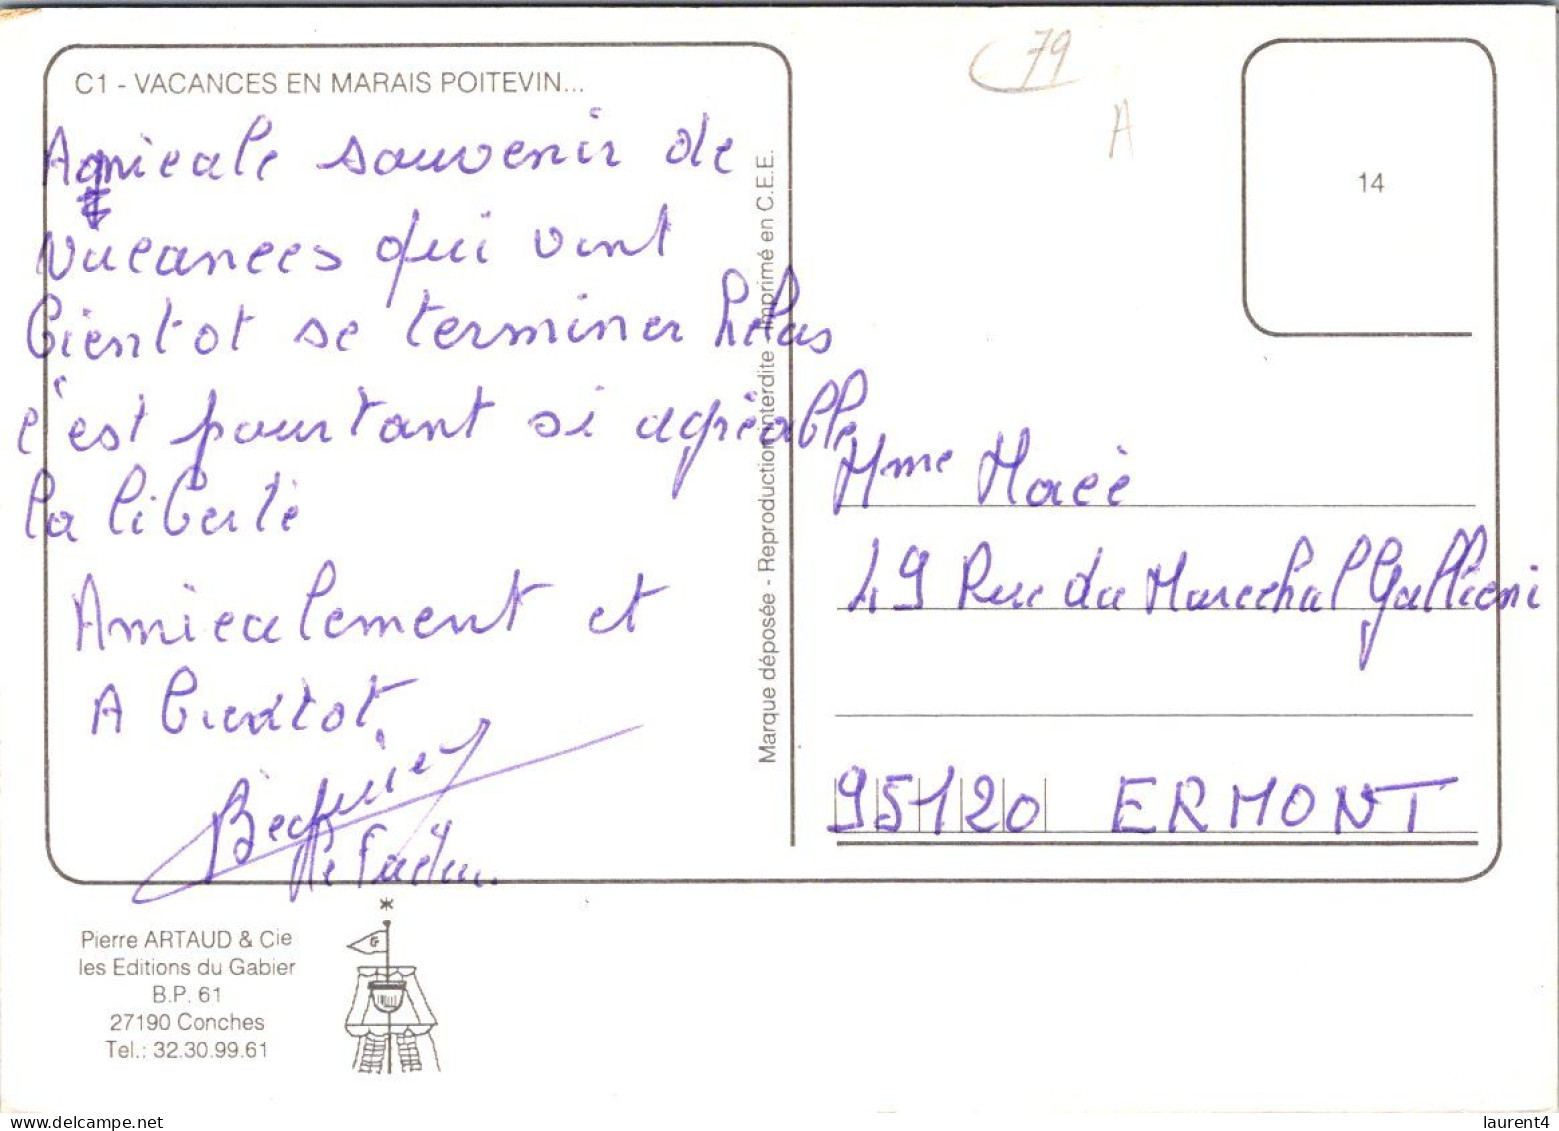 C1 - VACANCES EN MARAIS POITEVIN...
Amicale souvenir de
vacances qui vont
bientot se terminer helas
c'est pourtant si agréable
la liberté
Amicalement et
A bientot
79
A
14
Marque déposée - Reproduction interdite - Imprimé en C.E.E.
Mme Macé
49 Rue du Marechal Gallieni
95120 ERMONT
Pierre ARTAUD & Cie
les Editions du Gabier
B.P. 61
27190 Conches
Tel.: 32.30.99.61
G
laurent4